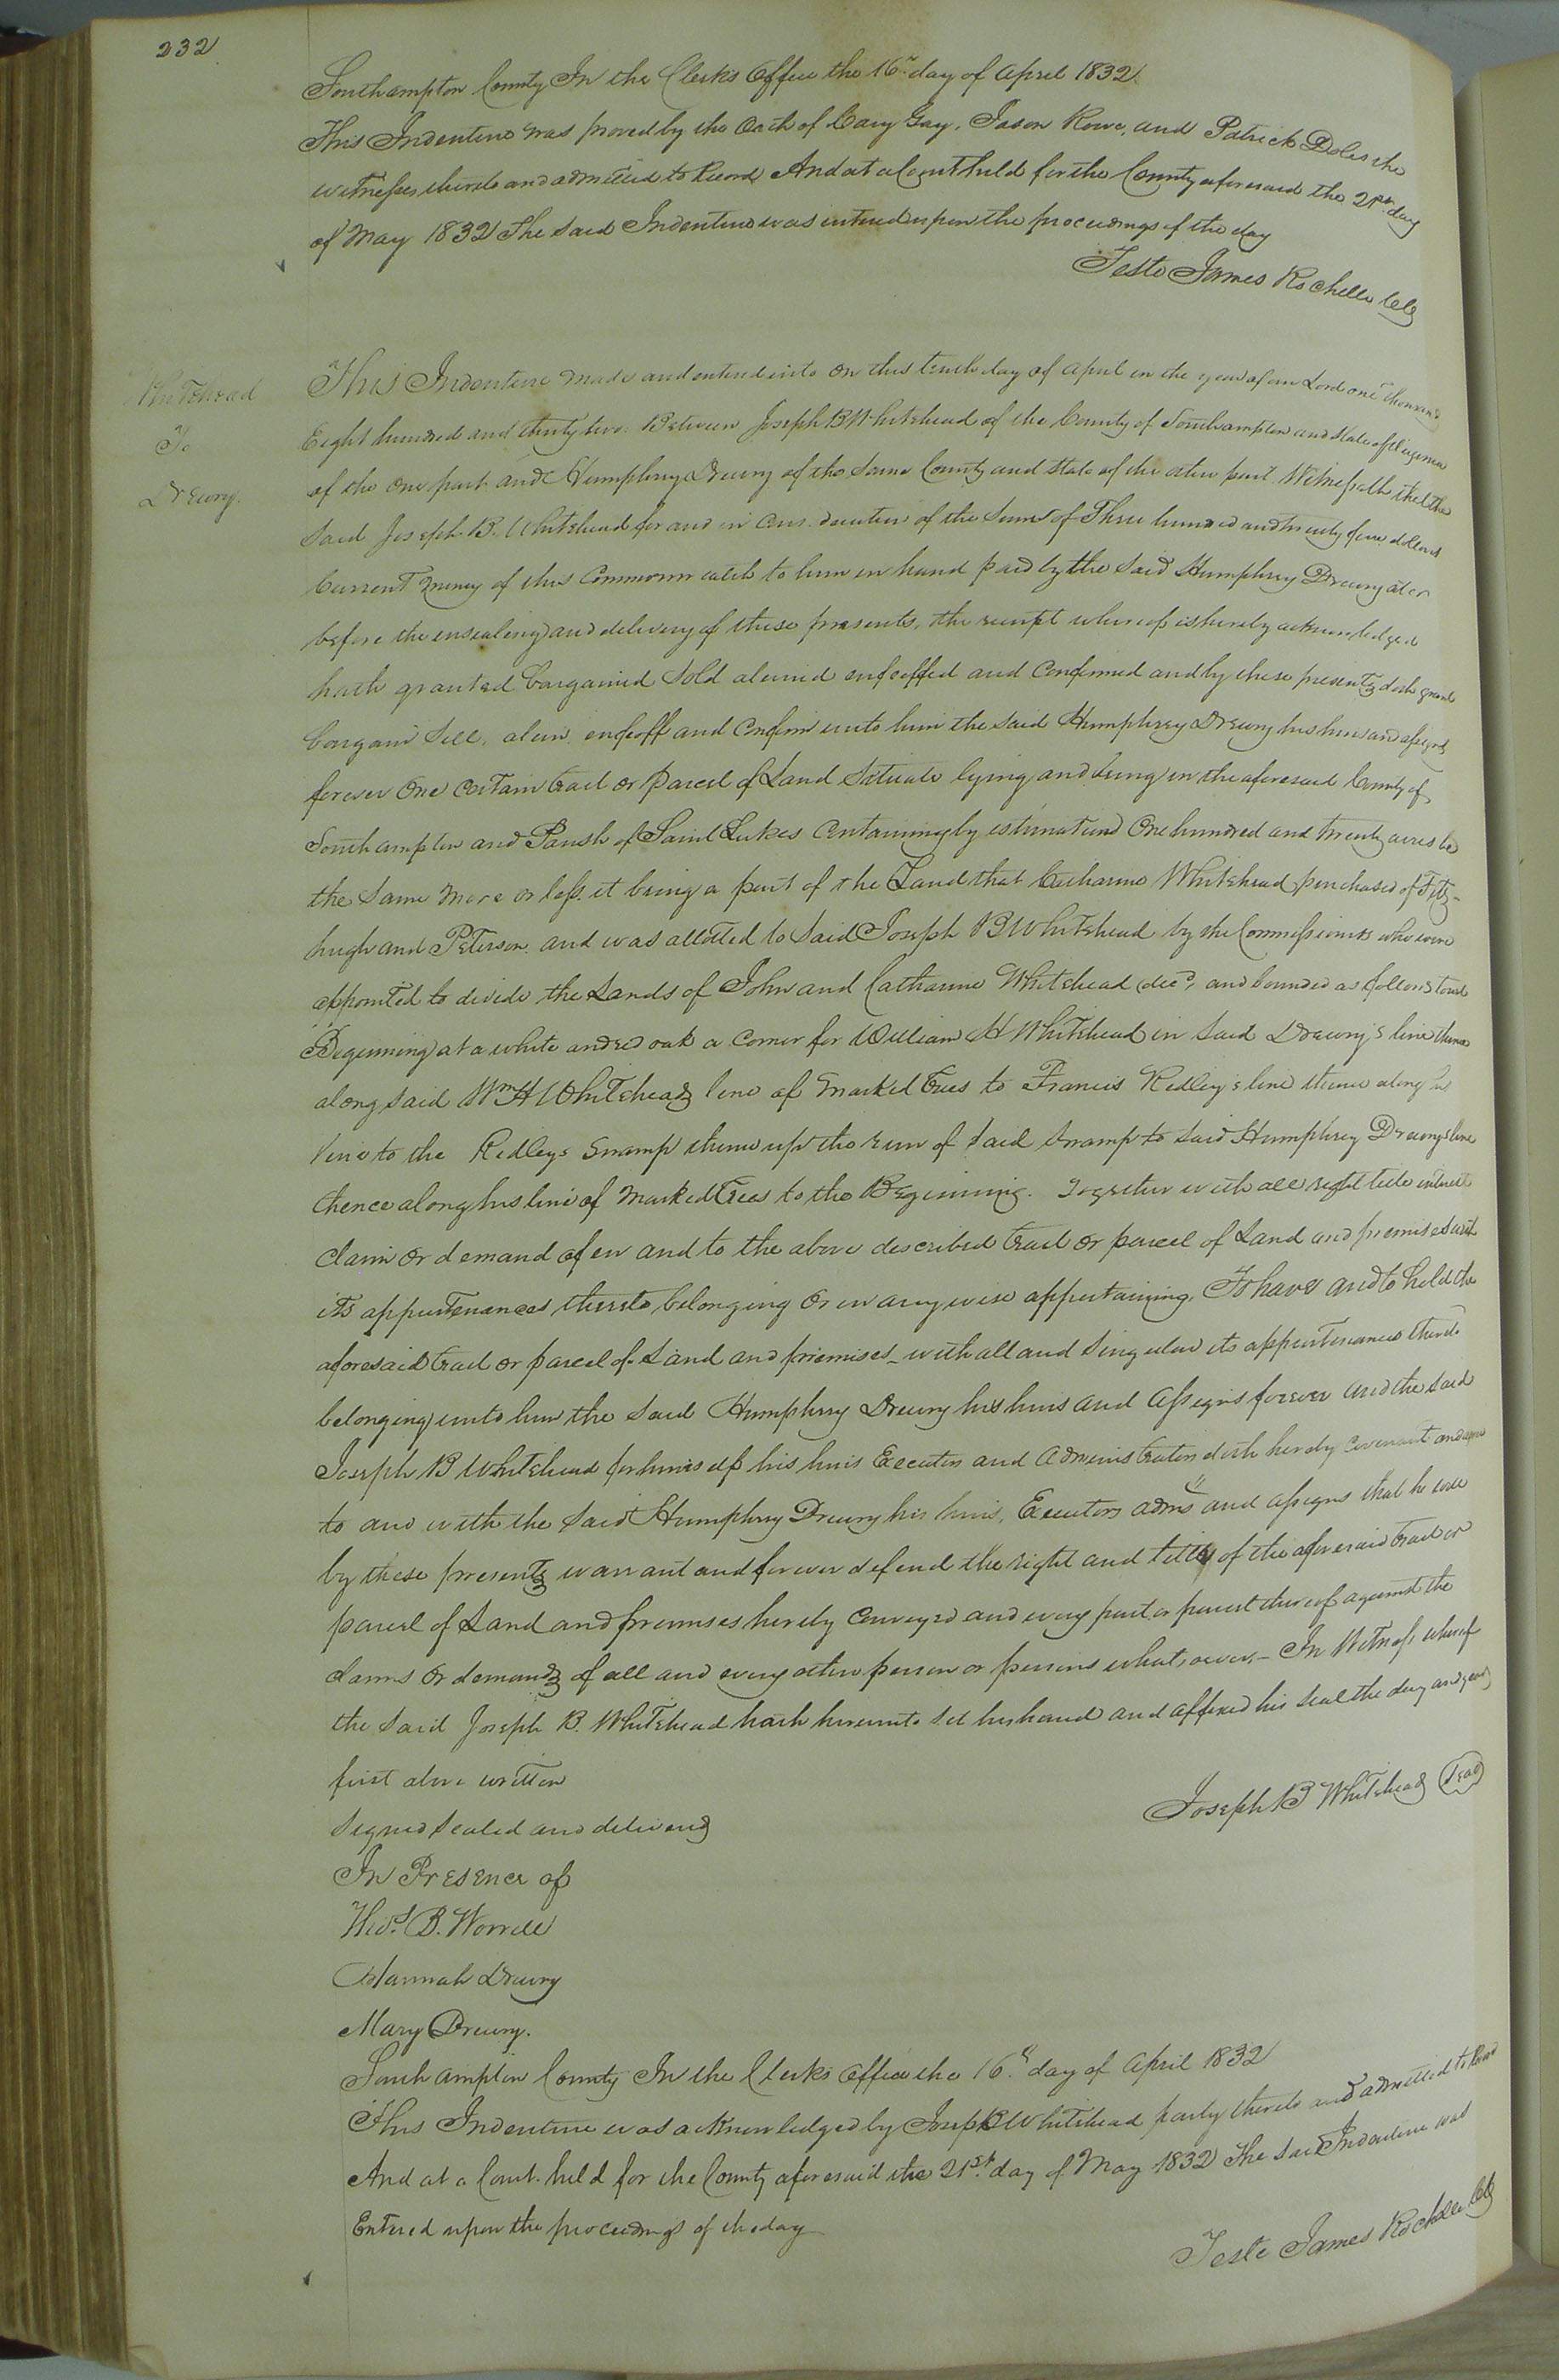 232
Southampton County In the Clerks Office the 16th day of April 1832
This Indenture was proved by the Oath of Cary Gay, Jason Rowe, and Patrick Doles the
witnesses thereto and admitted to Record And at a Court held for the County aforesaid the 21st day
of May 1832 The said Indenture was entered upon the proceedings of the day
Teste James Rochelle Clk
Whitehead
To
Drewry.
This Indenture made and entered into on this tenth day of April in the year of our Lord one thousand
Eight hundred and thirty two. Between Joseph B Whitehead of the County of Southampton and State of Virginia
of the one part and Humphrey Drewry of the same County and State of the other part Witnesseth that the
said Joseph B. Whitehead for and in consideration of the sum of Three hundred and twenty four dollars
Current money of this Commonwealth to him in hand paid by the said Humphrey Drewry at or
before the ensealing and delivery of these presents, the receipt whereof is hereby acknowledged
hath granted bargained sold aliened enfeoffed and confirmed and by these presents doth grant
bargain sell, alien, enfeoff and confirm unto him the said Humphrey Drewry his heirs and assigns
forever One certain tract or parcel of Land situate lying and being in the aforesaid County of
Southampton and Parish of Saint Lukes Containing by estimation One hundred and twenty acres be
the same more or less. it being a part of the Land that Catharine Whitehead purchased of Fitz-
hugh and Peterson and was allotted to said Joseph B Whitehead by the Commissioners who were
appointed to divide the Lands of John and Catharine Whitehead decd, and bounded as follows towit
Beginning at a white and red oak a corner for William H Whitehead in said Drewry's line thence
along said Wm H Whiteheads line of marked trees to Francis Ridley's line thence along his
line to the Ridleys Swamp thence up the run of said Swamp to said Humphrey Drewrys line
thence along his line of marked trees to the Beginning. Together with all right title interest
claim or demand of in and to the above described tract or parcel of Land and premises with
its appurtenances thereto belonging or in any wise appertaining, To have and to hold the
aforesaid tract or parcel of Land and premises with all and singular its appurtenances thereto
belonging unto him the said Humphrey Drewry his heirs and assigns forever And the said
Joseph B Whitehead for himself his heirs Executors and Administrators doth hereby covenant and agree
to and with the said Humphrey Drewry his heirs, Executors admrs and assigns that he will
by these presents warrant and forever defend the right and title of the aforesaid tract or
parcel of Land and premises hereby conveyed and every part or parcel thereof against the
claims or demands of all and every other person or persons whatsoever. - In Witness whereof
the said Joseph B. Whitehead hath hereunto set his hand and affixed his seal the day and year
first above written
Joseph B Whitehead Seal
Signed Sealed and delivered
In Presence of
Thos. B. Worrell
Hannah Drewry
Mary Drewry.
Southampton County In the Clerks office the 16th day of April 1832
This Indenture was acknowledged by Joseph B Whitehead party thereto and admitted to Record
And at a Court held for the County aforesaid the 21st. day of May 1832 The said Indenture was
Entered upon the proceedings of the day
Teste James Rochelle Clk